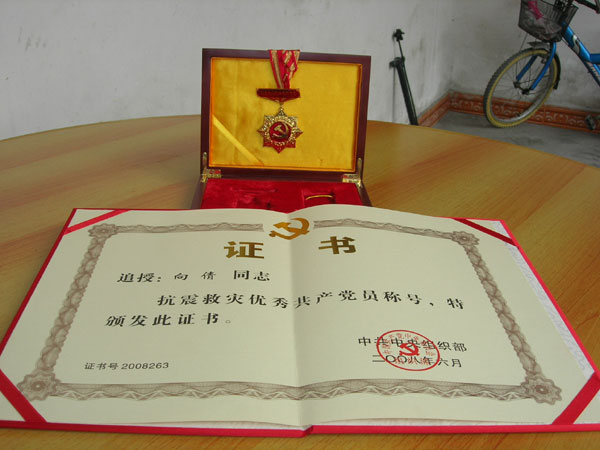 证书
追授：向倩 同志
抗震救灾优秀共产党员称号，特
颁发此证书。
中共中央组织部
二〇〇八年六月
证书号 2008263